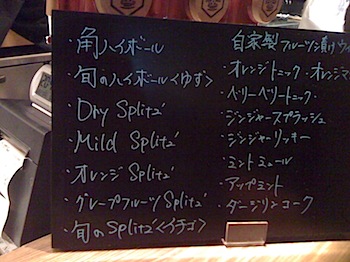 ・角ハイボール
・旬のハイボール<ゆず>
・Dry Splitz'
・Mild Splitz'
・オレンジ Splitz'
・グレープフルーツ Splitz'
・旬の Splitz'<イチゴ>
自家製フルーツ漬けウォ
・オレンジトニック・オレンジマ
・ベリーベリートニック・
・ジンジャースプラッシュ
・ジンジャーリッキー
・ミントミュール
・アップミント
・ダージリンコーク